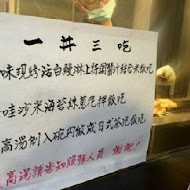 一丼三吃
味現烤活白鰻淋上特調醬汁結合米飯吃
哇沙米海苔絲蔥花拌飯吃
高湯倒入碗內做成日式茶泡飯吃
高湯請告知服務人員 謝謝!